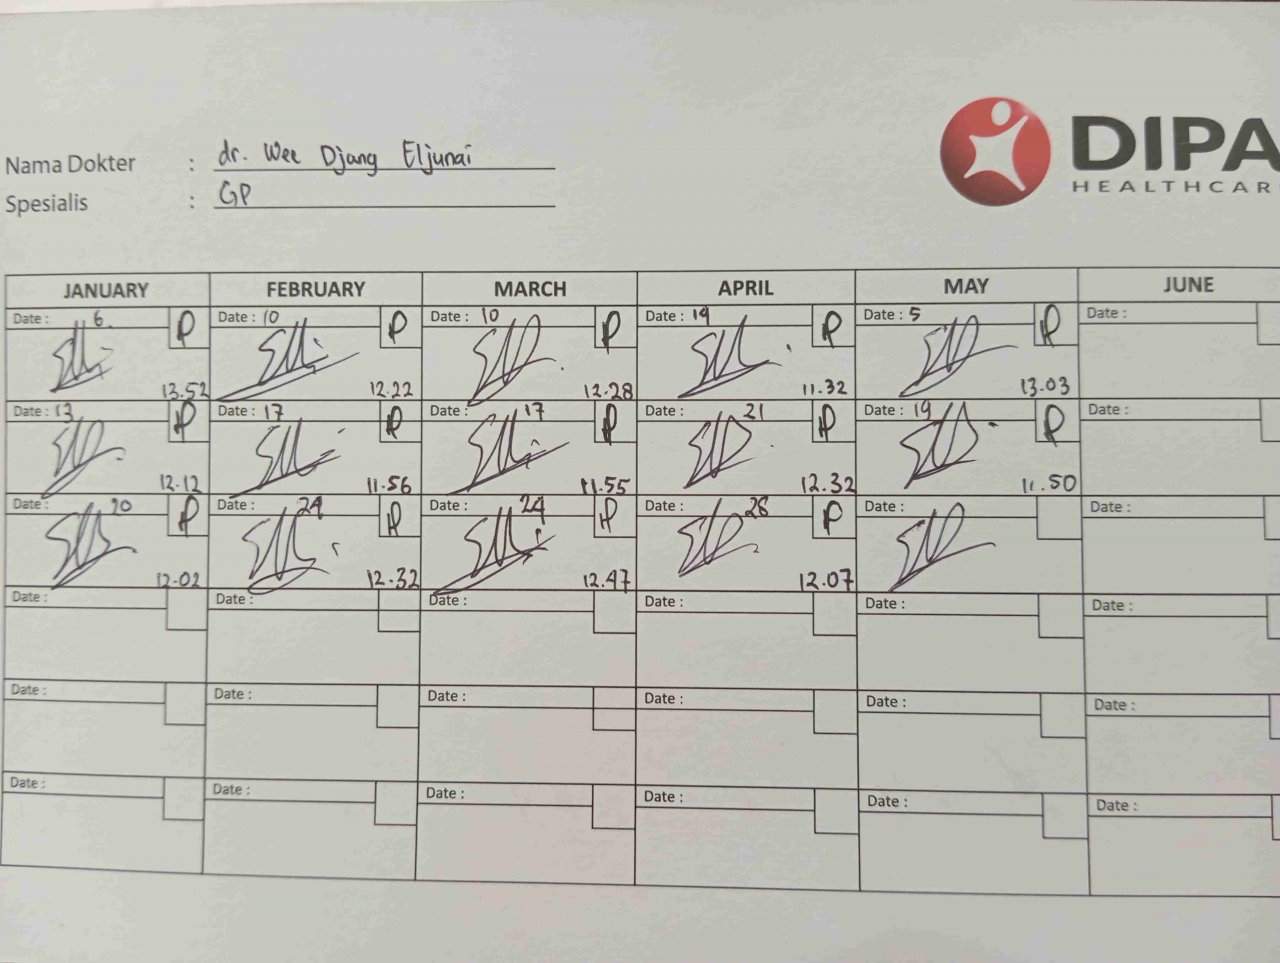 DIPA
HEALTHCAR
Nama Dokter : dr. Wee Djang Eljunai
Spesialis : GP
JANUARY FEBRUARY MARCH APRIL MAY JUNE
Date : 6 P Date : 10 P Date : 10 P Date : 14 P Date : 5 P Date :
13.52 12.22 12.28 11.32 13.03
Date : 13 P Date : 17 P Date : 17 P Date : 21 P Date : 19 P Date :
12.12 11.56 11.55 12.32 11.50
Date : 20 P Date : 24 P Date : 24 P Date : 28 P Date : Date :
12.02 12.32 12.47 12.07
Date : Date : Date : Date : Date : Date :
Date : Date : Date : Date : Date : Date :
Date : Date : Date : Date : Date : Date :